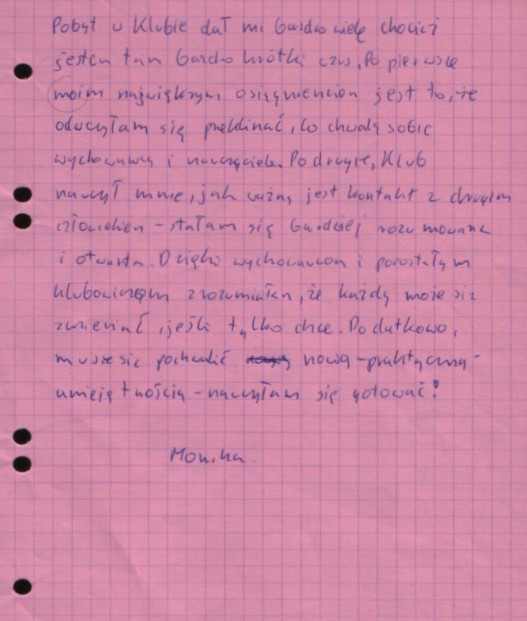 Pobyt w Klubie dał mi bardzo wiele chociaż
jestem tam bardzo krótki czas. Po pierwsze
moim największym osiągnieciem jest to, że
oduczyłam się przeklinać, co chwalą sobie
wychowawcy i nauczyciele. Po drugie, Klub
nauczył mnie, jak ważny jest kontakt z drugim
człowiekiem - stałam się bardziej rozumowana
i otwarta. Dzięki wychowawcom i pozostałym
klubowiczom zrozumiałam, że każdy może się
zmieniać, jeśli tylko chce. Dodatkowo,
muszę się pochwalić nową - praktyczną -
umiejętnością - nauczyłam się gotować!
Monika